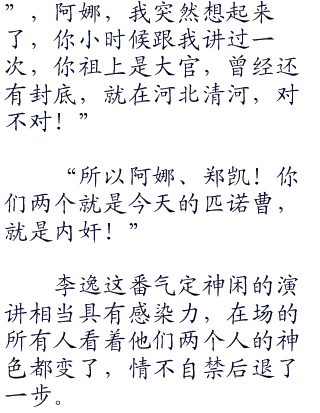 ”，阿娜，我突然想起来
了，你小时候跟我讲过一
次，你祖上是大官，曾经还
有封底，就在河北清河，对
不对！”
“所以阿娜、郑凯！你
们两个就是今天的匹诺曹，
就是内奸！”
李逸这番气定神闲的演
讲相当具有感染力，在场的
所有人看着他们两个人的神
色都变了，情不自禁后退了
一步。